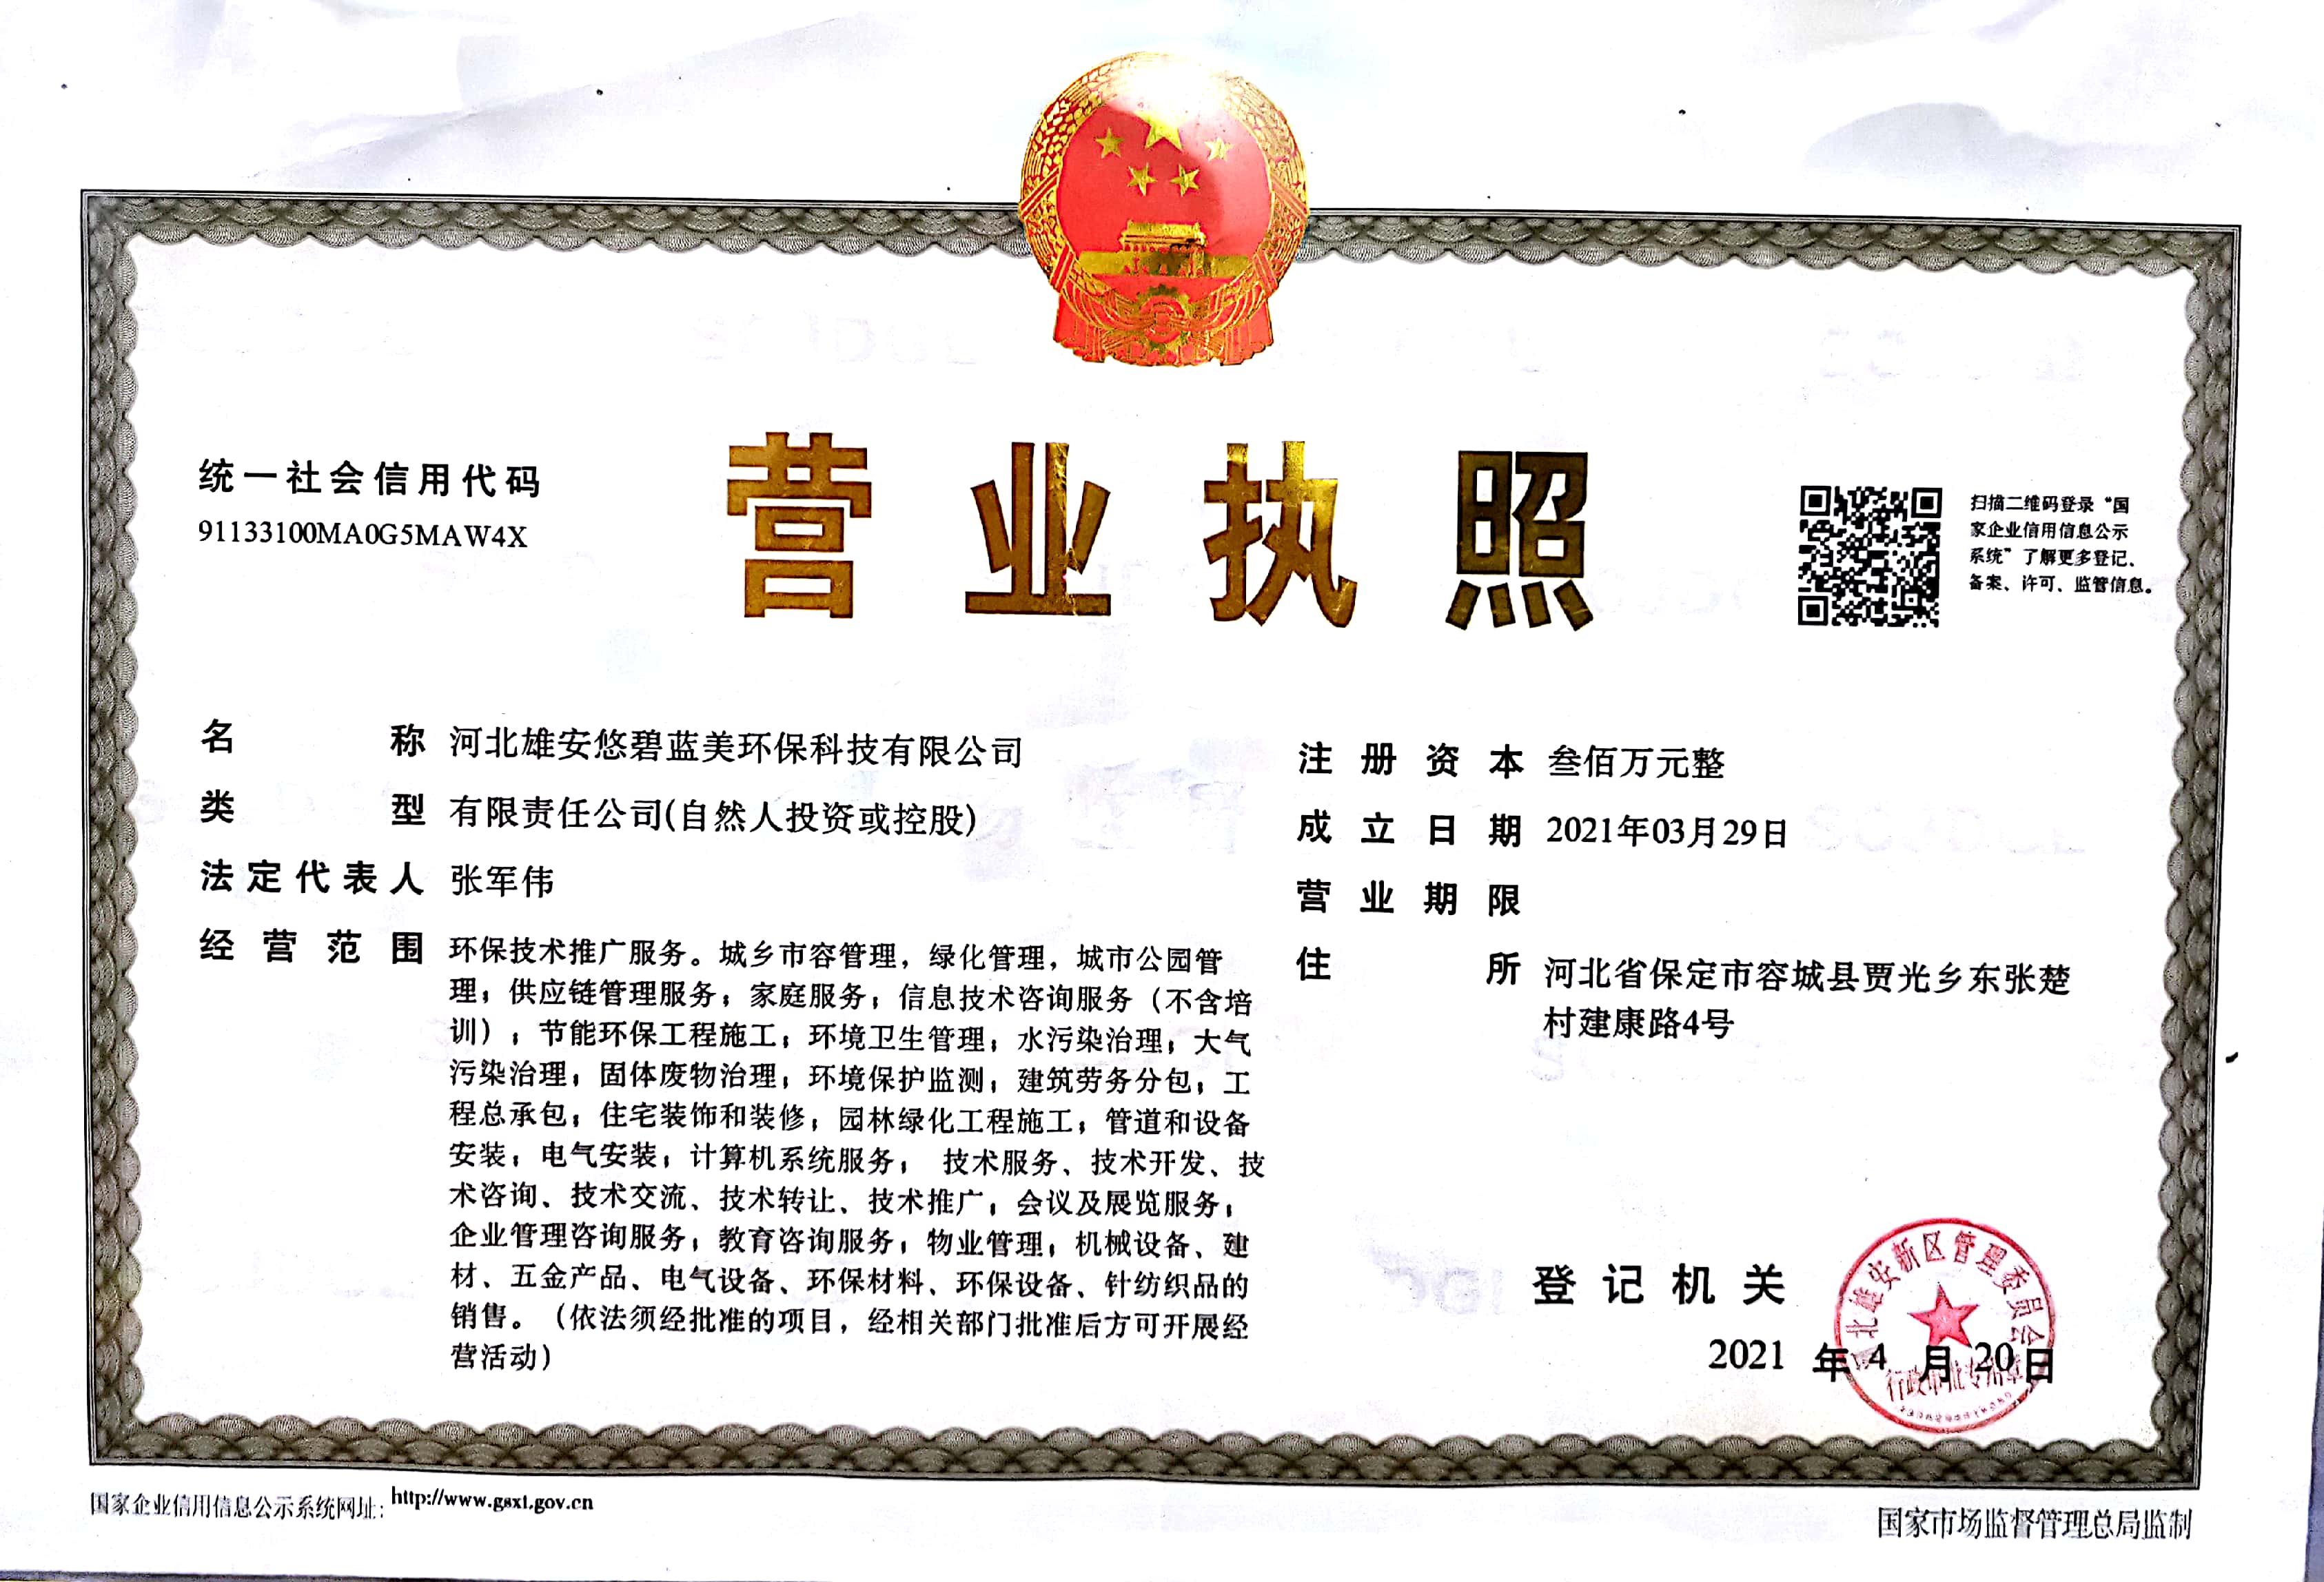 营业执照
统一社会信用代码
91133100MA0G5MAW4X
扫描二维码登录“国
家企业信用信息公示
系统”了解更多登记、
备案、许可、监管信息。
名称 河北雄安悠碧蓝美环保科技有限公司
类型 有限责任公司(自然人投资或控股)
法定代表人 张军伟
经营范围 环保技术推广服务。城乡市容管理，绿化管理，城市公园管
理；供应链管理服务；家庭服务；信息技术咨询服务（不含培
训）；节能环保工程施工；环境卫生管理；水污染治理；大气
污染治理；固体废物治理；环境保护监测；建筑劳务分包；工
程总承包；住宅装饰和装修；园林绿化工程施工；管道和设备
安装；电气安装；计算机系统服务； 技术服务、技术开发、技
术咨询、技术交流、技术转让、技术推广；会议及展览服务；
企业管理咨询服务；教育咨询服务；物业管理；机械设备、建
材、五金产品、电气设备、环保材料、环保设备、针纺织品的
销售。（依法须经批准的项目，经相关部门批准后方可开展经
营活动）
注册资本 叁佰万元整
成立日期 2021年03月29日
营业期限
住所 河北省保定市容城县贾光乡东张楚
村建康路4号
登记机关
2021 年 4 月 20 日
河北雄安新区管理委员会
行政审批专用章
国家企业信用信息公示系统网址：http://www.gsxt.gov.cn
国家市场监督管理总局监制